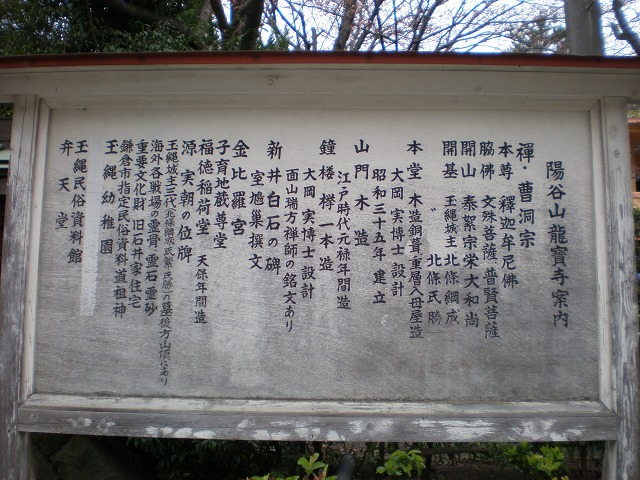 陽谷山龍寳寺案内
禪・曹洞宗
本尊 釋迦牟尼佛
脇佛 文殊菩薩・普賢菩薩
開山 泰絮宗栄大和尚
開基 玉縄城主北條綱成
〃 北條氏勝
本堂 木造銅葺重層入母屋造
大岡實博士設計
昭和三十五年建立
山門木造
江戸時代元禄年間造
鐘楼欅一本造
大岡実博士設計
面山瑞方禅師の銘文あり
新井白石の碑
室鳩巣撰文
金比羅宮
子育地蔵尊堂
福徳稲荷堂 天保年間造
源実朝の位牌
玉縄城主三代北條綱成氏繁氏勝の墓後方山頂にあり
海外各戦場の霊骨霊石霊砂
重要文化財旧石井家住宅
鎌倉市指定民俗資料道祖神
玉縄幼稚園
玉縄民俗資料館
弁天堂